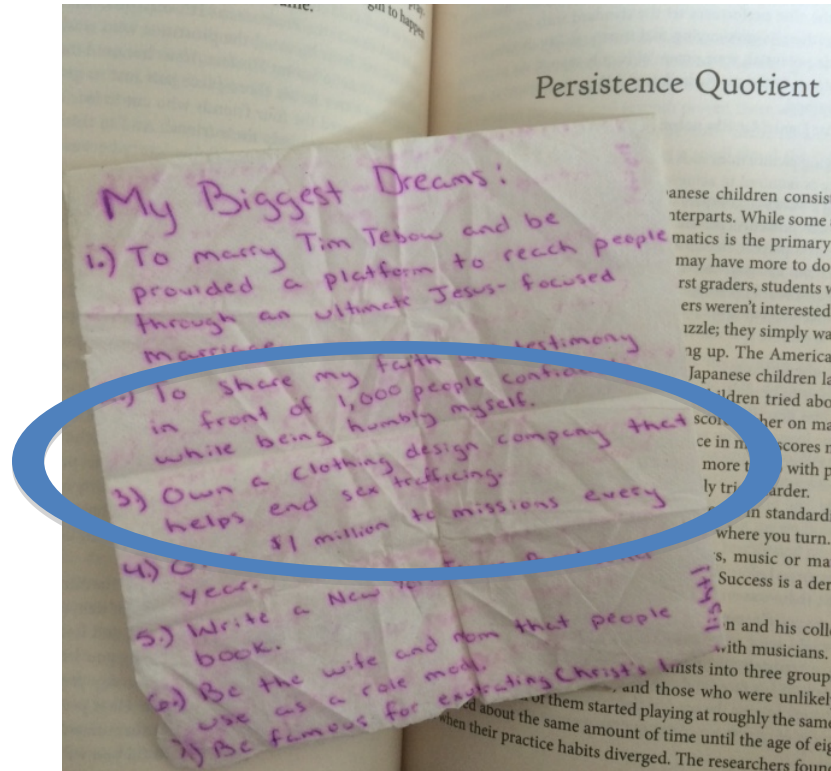 gin to happen
Persistence Quotient
My Biggest Dreams:
1.) To marry Tim Tebow and be
provided a platform to reach people
through an ultimate Jesus-focused
marriage.
To share my faith testimony
in front of 1,000 people
while being humbly myself.
3.) Own a clothing design company that
helps end sex trafficing.
4.) $1 million to missions every
year.
5.) Write a New
book.
6.) Be the wife and mom that people
use as a role model.
7.) Be famous for Christ's
anese children consis
nterparts. While some
matics is the primary
may have more to do
rst graders, students w
ers weren't interested
uzzle; they simply wa
ng up. The America
Japanese children la
ildren tried abo
her on ma
scores
more with p
ly tri arder.
in standardi
where you turn.
s, music or ma
Success is a der
n and his coll
with musicians.
ists into three group
and those who were unlikel
of them started playing at roughly the same
ed about the same amount of time until the age of eig
when their practice habits diverged. The researchers foun